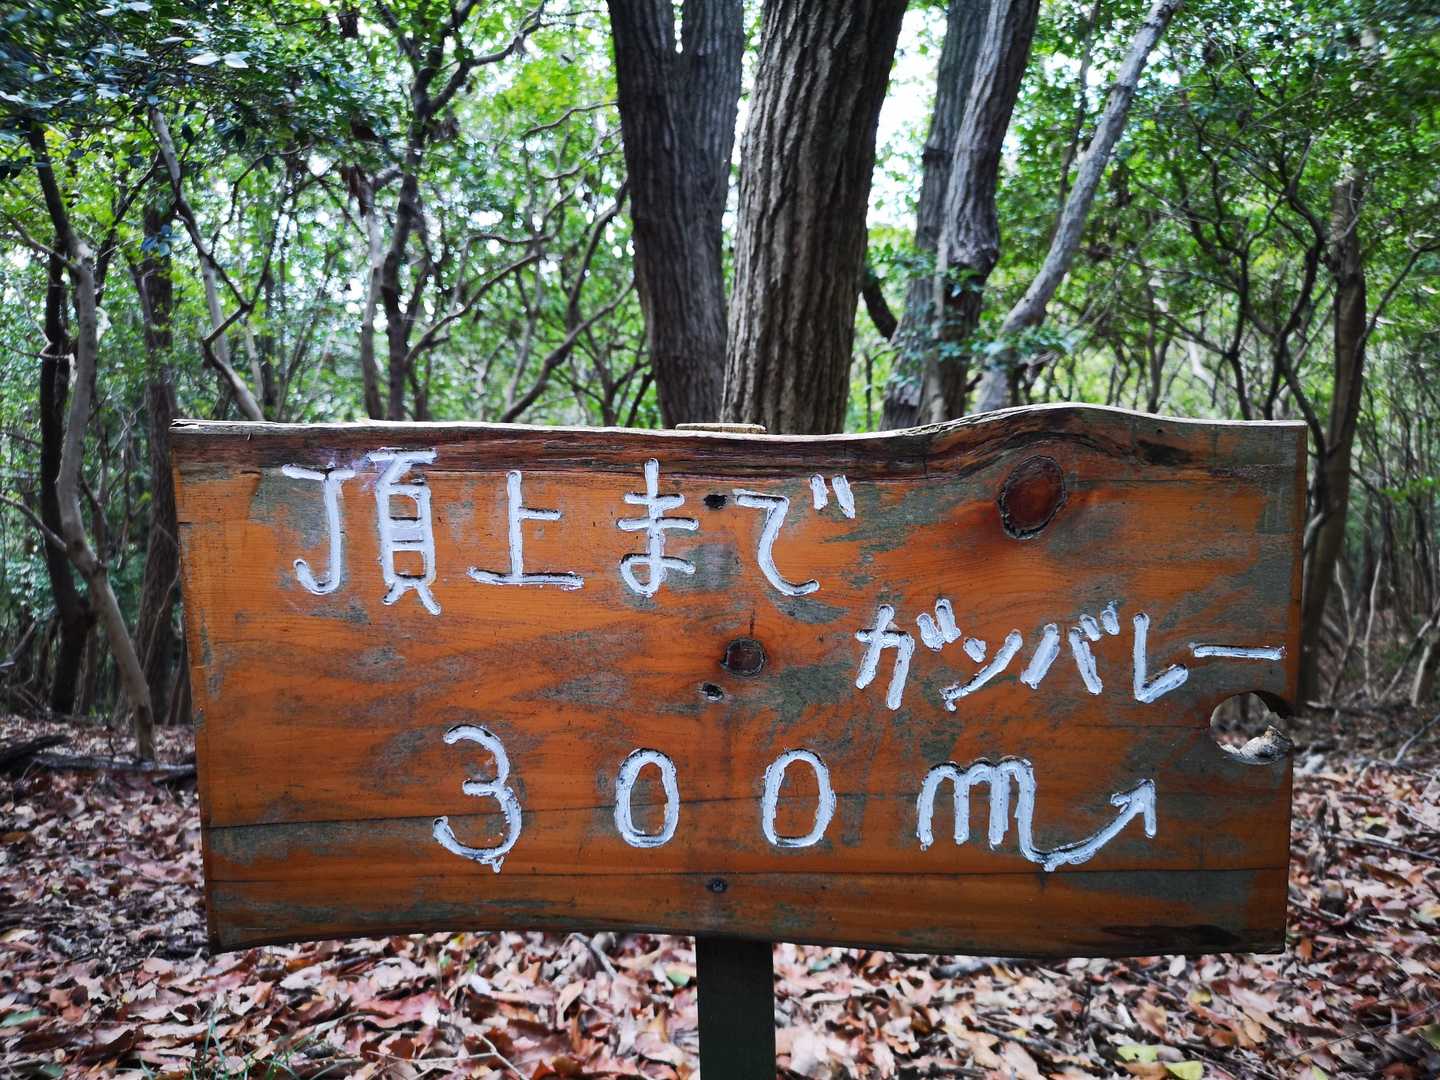 頂上まで
ガンバレー
300m